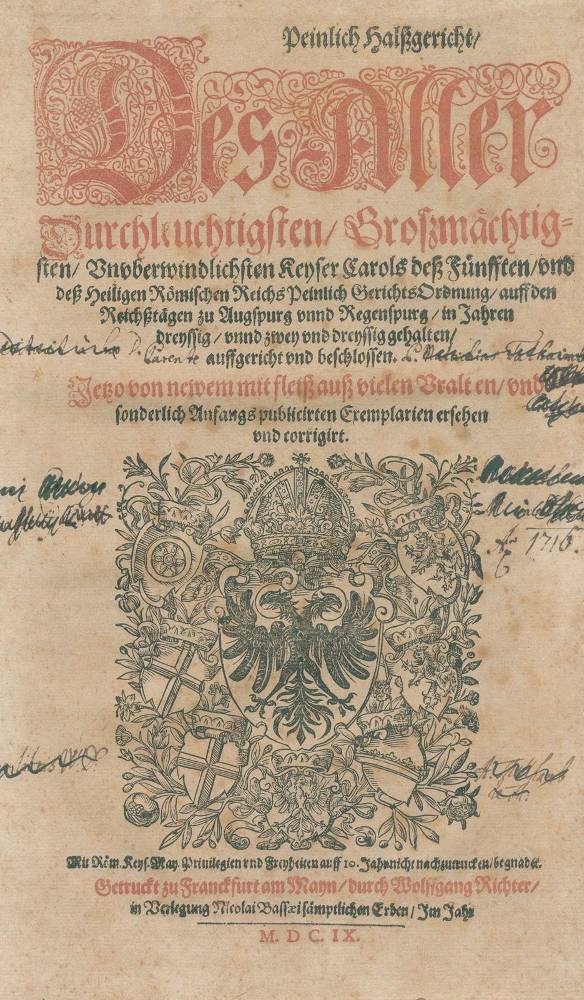 Peinlich Halßgericht/
Des Aller
Durchleuchtigsten/ Großmächtig=
sten/ Vnvberwindlichsten Keyser Carols deß Fünfften/ vnd
deß Heiligen Römischen Reichs Peinlich GerichtsOrdnung/ auff den
Reichßtägen zu Augspurg vnnd Regenspurg/ in Jahren
dreyssig/ vnnd zwey vnd dreyssig gehalten/
auffgericht vnd beschlossen.
Jetzo von newem mit fleiß auß vielen Vralten/ vnd
sonderlich Anfangs publicirten Exemplarien ersehen
vnd corrigirt.
1716.
Mit Röm. Keys. May. Priuilegien vnd Freyheiten auff 10. Jahr nicht nachzutrucken/ begnadet.
Getruckt zu Franckfurt am Mayn/ durch Wolffgang Richter/
in Verlegung Nicolai Bassæi sämptlichen Erben/ Im Jahr
M. D C. IX.